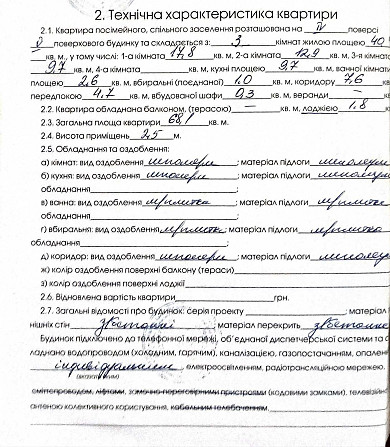 2. Технічна характеристика квартири
2.1. Квартира посімейного, спільного заселення розташована на IV поверсі
V поверхового будинку та складається з: 3 кімнат жилою площею 40
кв. м, у тому числі: 1-а кімната 17,8 кв. м, 2-а кімната 12,9 кв. м, 3-я кімната
9,7 кв. м, 4-а кімната кв. м, кухні площею 9,7 кв. м, ванної кімнати
площею 2,6 кв. м, вбиральні (поєднаної) 1,0 кв. м, коридору 7,6 кв
передпокою 4,7 кв. м, вбудованої шафи 0,3 кв. м, веранди — кв
2.2. Квартира обладнана балконом, (терасою) — кв. м, лоджією 1,8 к
2.3. Загальна площа квартири 68,1 кв. м.
2.4. Висота приміщень 2,5 м.
2.5. Обладнання та оздоблення:
а) кімнат: вид оздоблення шпалери; матеріал підлоги лінолеум
б) кухня: вид оздоблення шпалери; матеріал підлоги лінолеум
обладнання ;
в) ванна: вид оздоблення мр. плитка; матеріал підлоги мр. плитка
обладнання ;
г) вбиральня: вид оздоблення мр. плитка; матеріал підлоги мр. плитка
обладнання
д) коридор: вид оздоблення шпалери; матеріал підлоги лінолеум
ж) колір оздоблення поверхні балкону (тераси)
з) колір оздоблення поверхні лоджії
2.6. Відновлена вартість квартири грн.
2.7. Загальні відомості про будинок: серія проекту ; матеріал
нішніх стін з/бетонні ; матеріал перекрить з/бетонне
Будинок підключено до телефонної мережі, об'єднаної диспетчерської системи та о
ладнано водопроводом (холодним, гарячим), каналізацією, газопостачанням, опален
індивідуальним електроосвітленням, радіотрансляційною мережею,
(вказати яким)
сміттєпроводом, ліфтами, замочно-переговорними пристроями (кодовими замками), телевізій
антеною колективного користування, кабельним телебаченням.